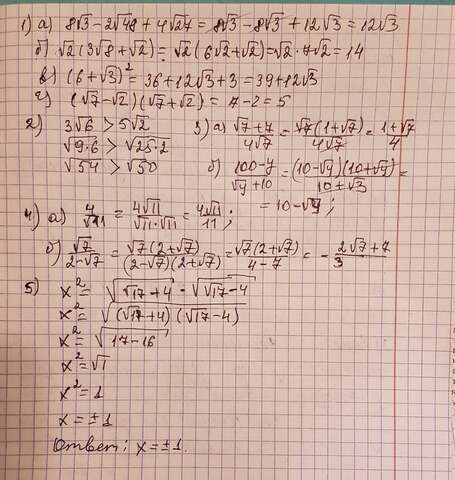 1) а) 8√3 - 2√48 + 4√27 = 8√3 - 8√3 + 12√3 = 12√3
б) √2(3√8 + √2) = √2(6√2 + √2) = √2 · 7√2 = 14
в) (6 + √3)² = 36 + 12√3 + 3 = 39 + 12√3
г) (√7 - √2)(√7 + √2) = 7 - 2 = 5
2) 3√6 > 5√2
√9·6 > √25·2
√54 > √50
3) а) (√7 + 7)/(4√7) = √7(1 + √7)/(4√7) = (1 + √7)/4
б) (100 - y)/(√y + 10) = (10 - √y)(10 + √y)/(10 + √3) =
= 10 - √y;
4) а) 4/√11 = 4√11/(√11 · √11) = 4√11/11;
б) √7/(2 - √7) = √7(2 + √7)/((2 - √7)(2 + √7)) = √7(2 + √7)/(4 - 7) = - (2√7 + 7)/3
5) x² = √(√17 + 4) · √(√17 - 4)
x² = √((√17 + 4)(√17 - 4))
x² = √(17 - 16)
x² = √1
x² = 1
x = ± 1
Ответ: x = ± 1.